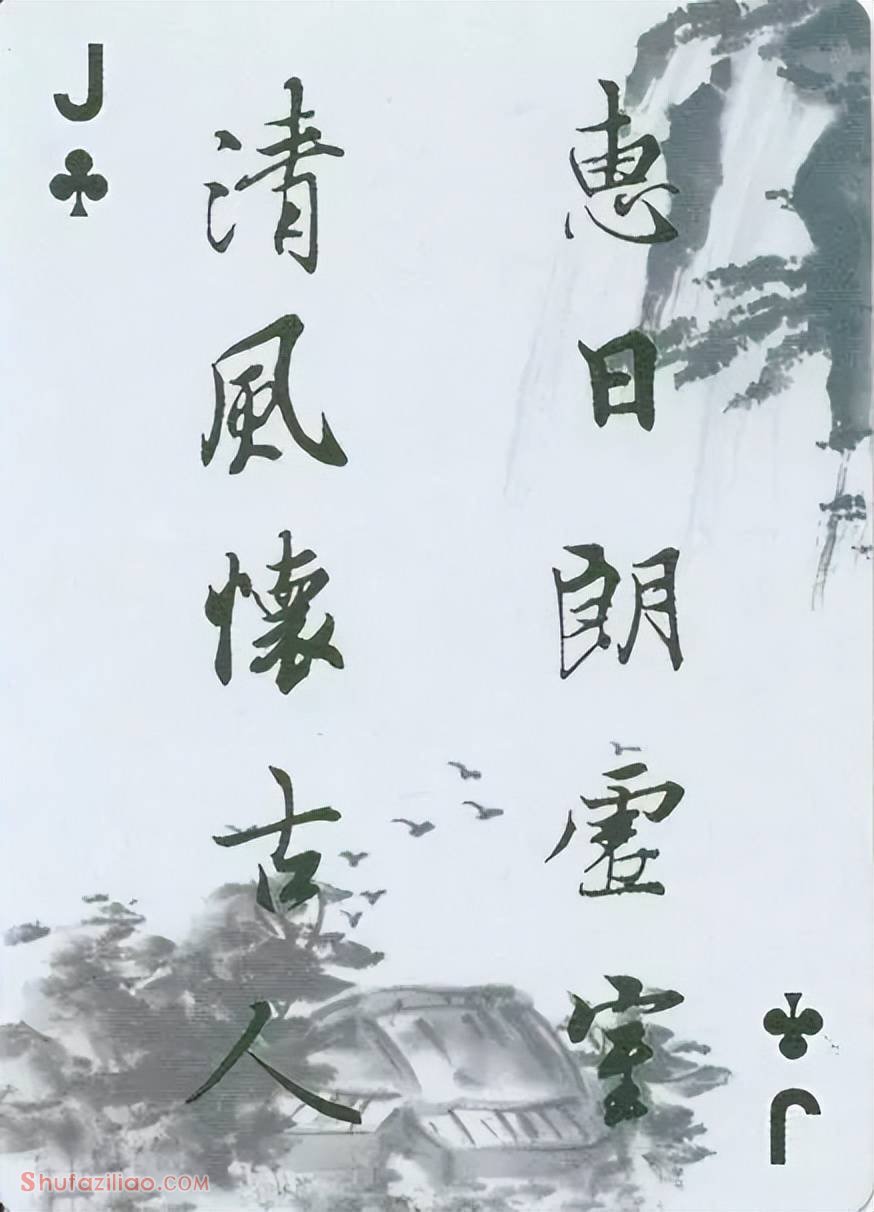 J
惠日朗虛室
清風懷古人
J
Shufaziliao.com